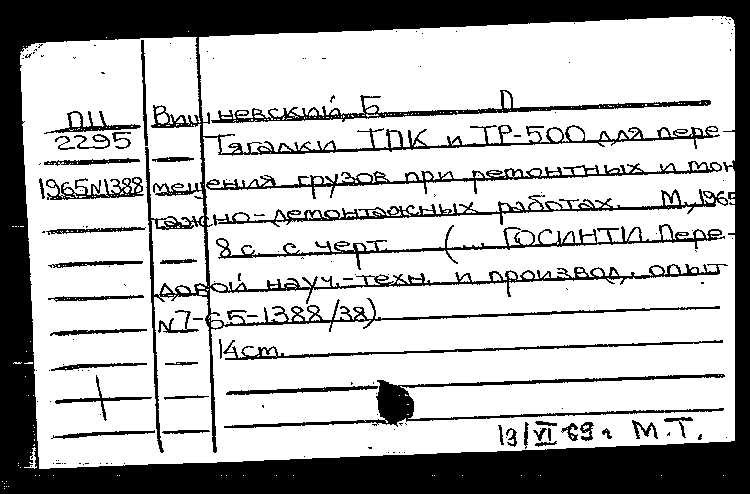 ПII Вишневский, Б П
2295 Тягалки ТПК и ТР-500 для пере-
1965 N1388 мещения грузов при ремонтных и мон
тажно-демонтажных работах. М., 1965
8 с. с черт. (... ГОСИНТИ. Пере-
довой науч.-техн. и производ. опыт
N7-65-1388/38).
14 cm.
19/VI 69 г М.Т.